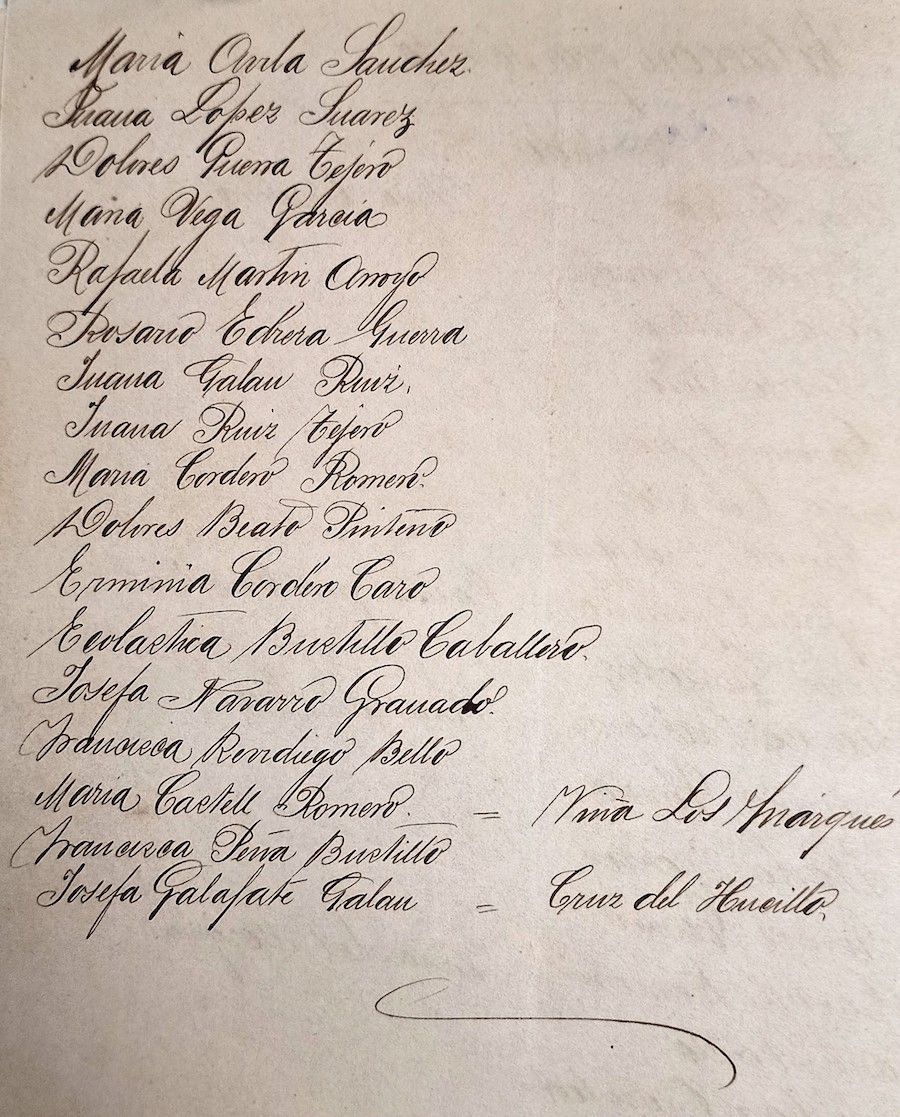 Maria Avila Sanchez.
Juana Lopez Suarez
Dolores Guerra Tejero
Maria Vega Garcia
Rafaela Martin Arroyo
Rosario Edrera Guerra
Juana Galau Ruiz.
Juana Ruiz Tejero
Maria Cordero Romero.
Dolores Beato Pinteño
Erminia Cordero Caro
Ecolactica Buctillo Caballero.
Josefa Navarro Granado.
Francisca Bello
Maria Castell Romero. = Viña Los Márqués
Francisca Peña Buctillo
Josefa Galafate Galau = Cruz del Hucillo.